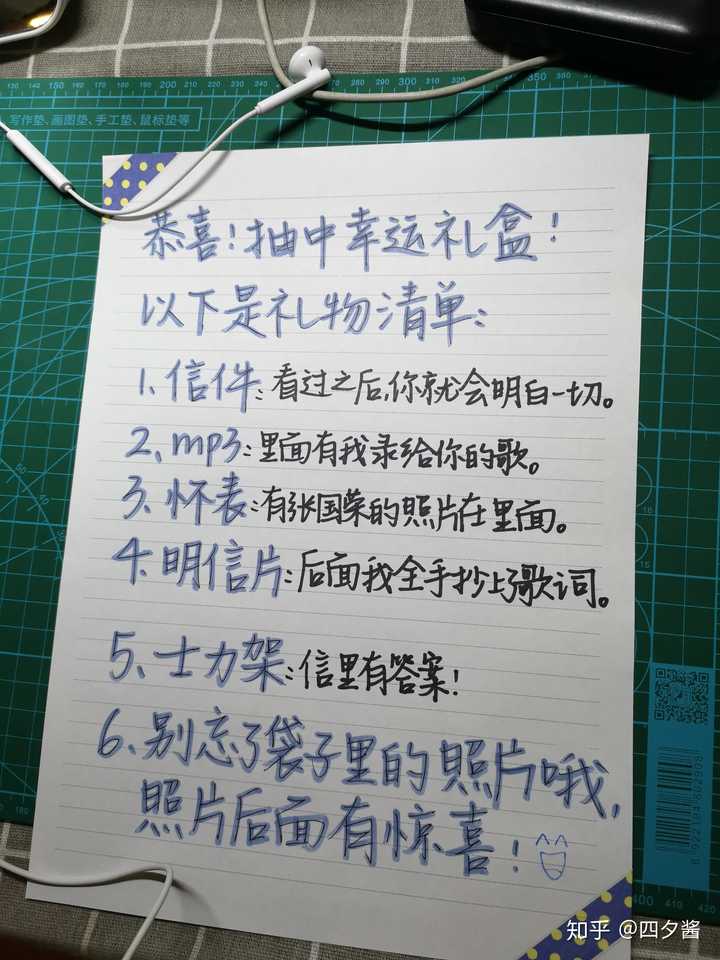 写作垫、画图垫、手工垫、鼠标垫等
恭喜!抽中幸运礼盒!
以下是礼物清单:
1.信件:看过之后,你就会明白一切。
2、mp3:里面有我录给你的歌。
3.怀表:有张国荣的照片在里面。
4.明信片:后面我全手抄上了歌词。
5、士力架:信里有答案!
6.别忘了袋子里的照片哦,
照片后面有惊喜!
知乎 @四夕酱